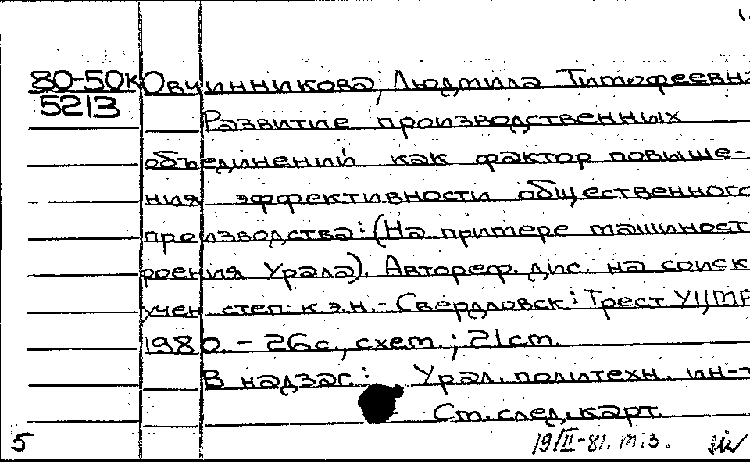 80-50к Овчинникова, Людмила Тимофеевна
5213
Развитие производственных
объединений как фактор повыше-
ния эффективности общественного
производства: (На примере машиност
роения Урала). Автореф. дис. на соиск
учен. степ. к.э.н. - Свердловск: Трест
1980. - 26с., схем.; 21см.
В надзаг: Урал. политехн. ин-т
См. след. карт.
5
19/II-81. т.з.